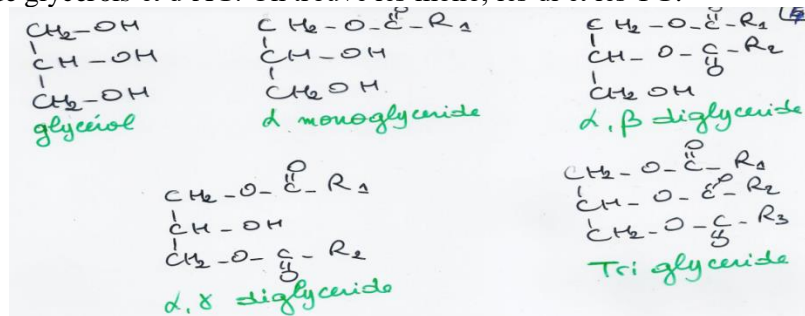 glycérol
CH2-OH
CH-OH
CH2-OH
CH2-O-C-R1
O
CH-OH
CH2OH
α monoglyceride
CH2-O-C-R1
O
CH-O-C-R2
O
CH2OH
α, β diglyceride
CH2-O-C-R1
O
CH-OH
CH2-O-C-R2
O
α, γ diglyceride
CH2-O-C-R1
O
CH-O-C-R2
O
CH2-O-C-R3
O
Tri glyceride